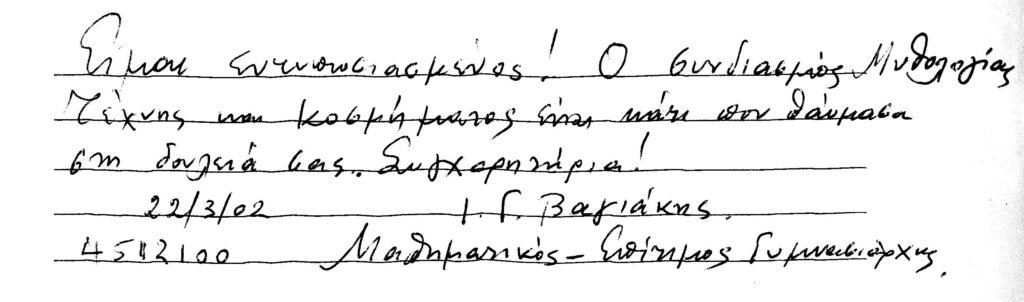 Είμαι εντυπωσιασμένος! Ο συνδιασμός Μυθολογίας
Τέχνης και κοσμήματος είναι κάτι που θαύμασα
στη δουλειά σας. Συγχαρητήρια!
22/3/02 Ι. Γ. Βαγιάκης.
4512100 Μαθηματικός - Επίτιμος Γυμνασιάρχης.